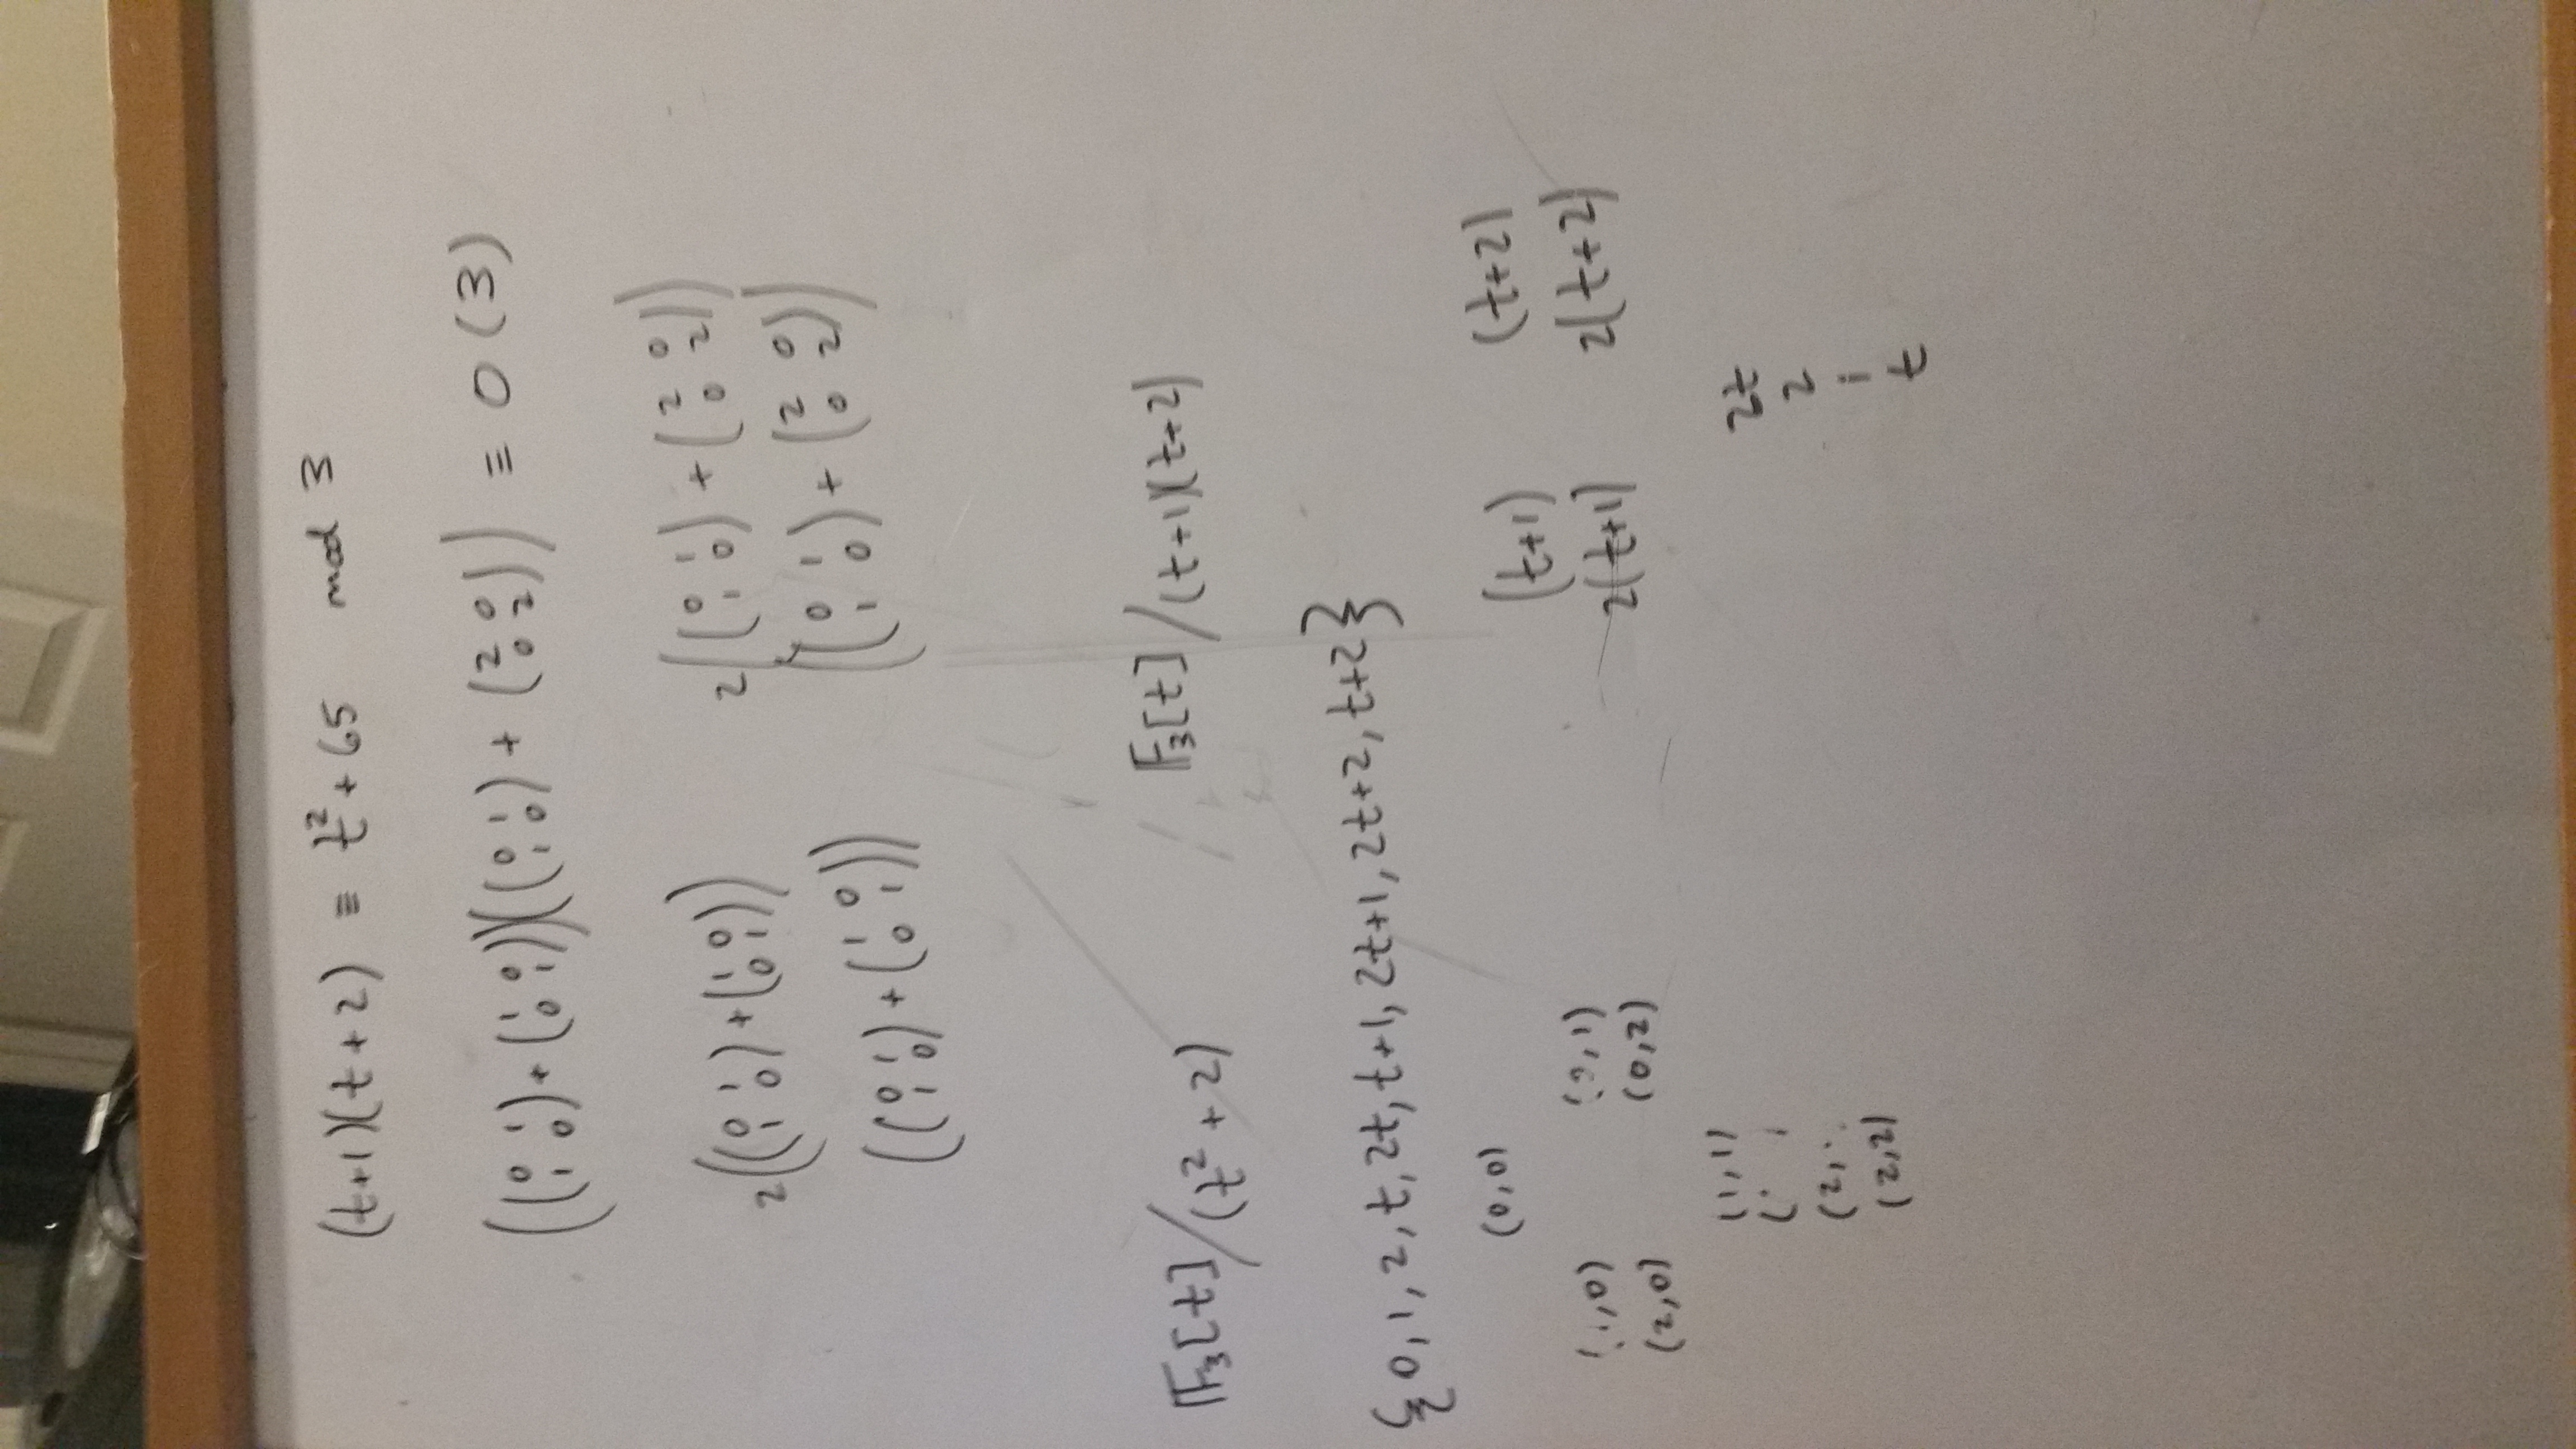 (t+1)(t+2) ≡ t² + 65 mod 3
((0 1; 1 0) + (1 0; 0 1))((0 1; 1 0) + (2 0; 0 2)) ≡ 0 (3)
2((0 1; 1 0) + (1 0; 0 1)) 2((0 1; 1 0) + (2 0; 0 2))
((0 1; 1 0) + (1 0; 0 1)) ((0 1; 1 0) + (2 0; 0 2))
𝔽₃[t]/(t² + 2) 𝔽₃[t]/(t+1)(t+2)
{0, 1, 2, t, 2t, t+1, 2t+1, 2t+2, t+2}
(0,0) (t+1) (t+2)
(1,0) (0,1) 2(t+1) 2(t+2)
(2,0) (0,2)
(1,1) 2t
2
(2, 1
(2,2) t